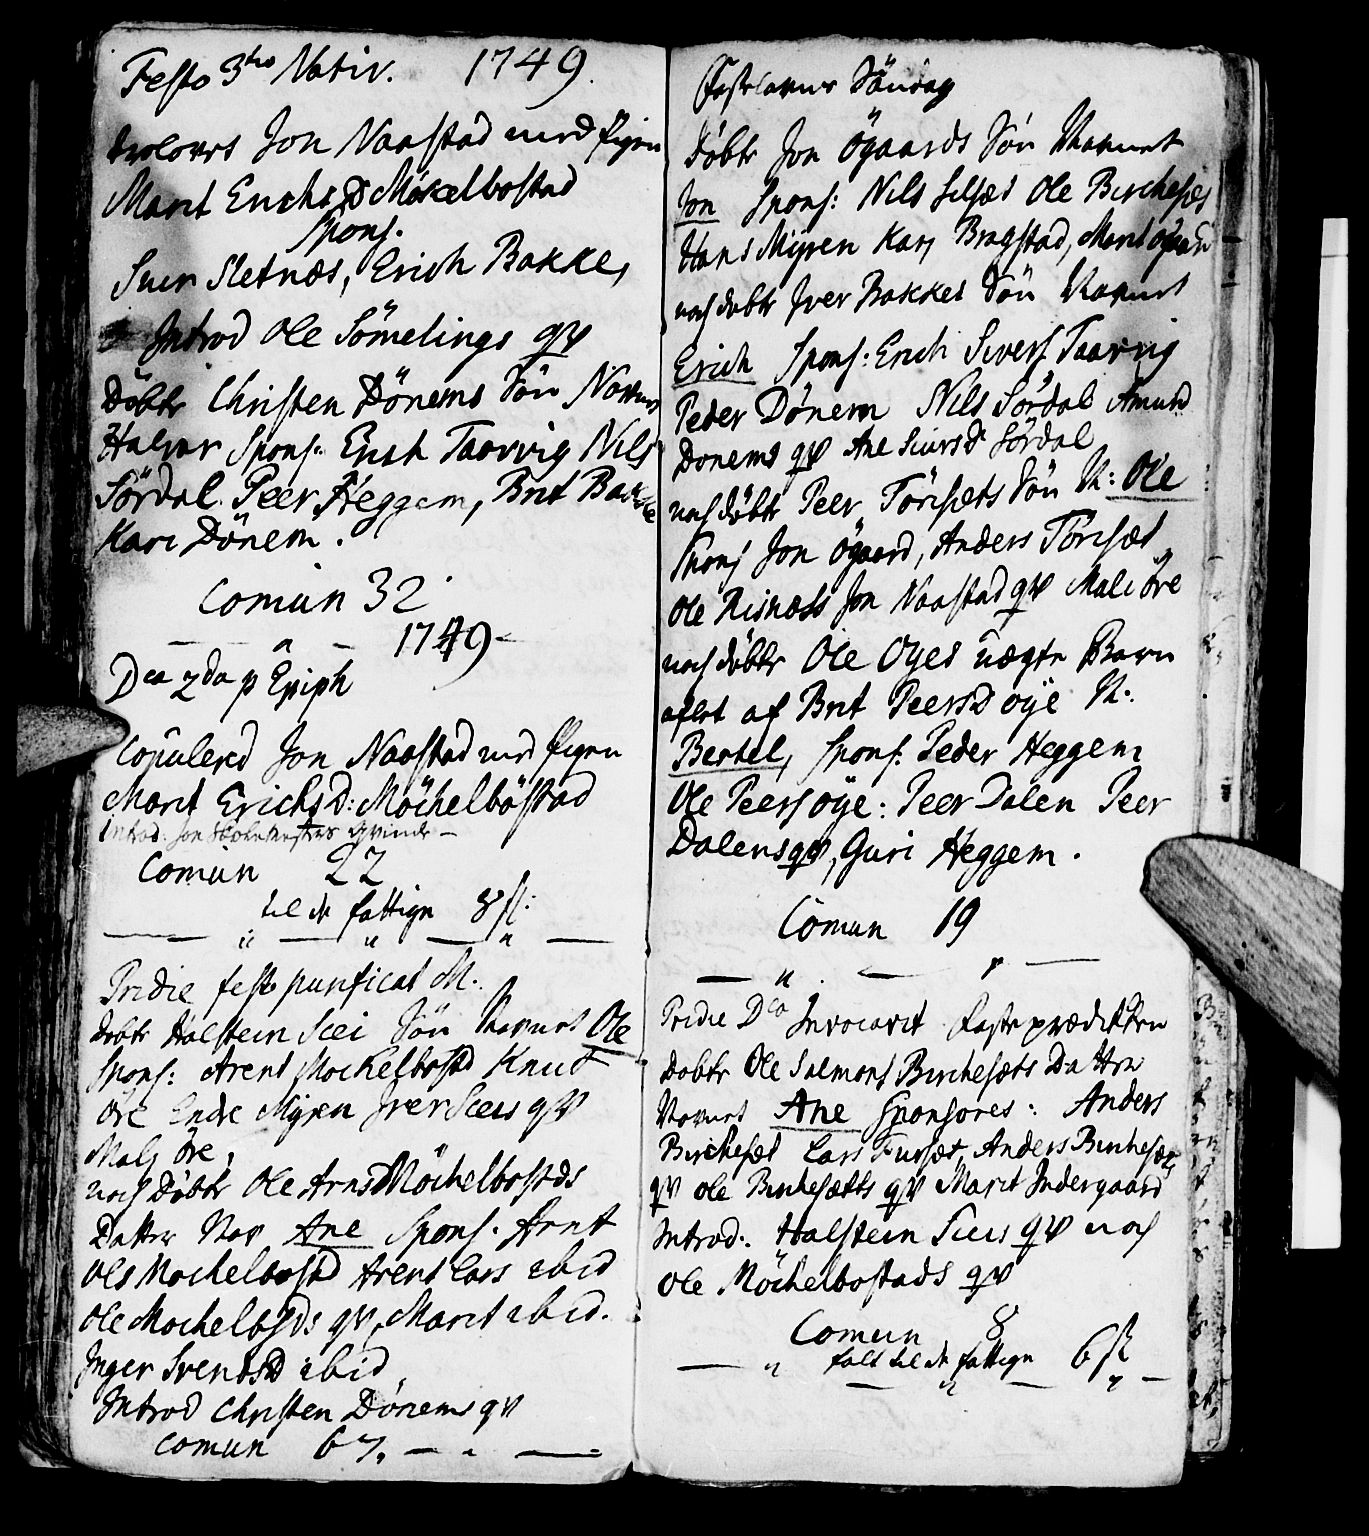 Festo 3tio Nativ. 1749.
trolovet Jon Naastad med Pigen
Marit Erichs D Möckelbostad
Spons.
Siver Sletnæs, Erich Bakke,
Introd Ole Sömelings qv
Döbtt Christen Dönems Sön Navn
Halvar Spons: Erich Taarvig Nils
Sördal Peer Heggem, Brit Bakke
Kari Dönem.
Comun 32
1749
Dca 2da p Epiph
Copulered Jon Naastad med Pigen
Marit Erichs D: Möchelböstad
Introd: Jon Qvinde
Comun 22
til de fattige 8 ſl:
Pridie festo purificat M.
döbtt Halstein Scei Sön Navnet Ole
Spons: Arent Mockelbostd Knut
Öre Ende Myren Iver Sceis qv
Mali Öre,
noch Döbtt Ole Arns Möchelbostds
Datter Nav Ane Spons. Arnt
Ols Mochelbostd Arent Lars ibid
Ole Mochelbstds qv, Marit ibid.
Inger SvendsD ibid
Introd Christen Dönems qv
Comun 67.
Fastelavns Söndag
Döbtt Jon Ögaards Sön Navnet
Jon Spons: Nils Silset Ole Birchesæt
Hans Myren Kari Bragstad, Marit Ögaard
noch döbtt Iver Bakkes Sön Navnet
Erich Spons: Erich Sivers Taarvig
Peder Dönem Nils Sördal Amund
Donems qv Ane SiversD Sördal
noch döbtt Peer Törisets Sön N: Ole
Spons Jon Ögaard, Anders Töriset
Ole Risnæss Jon Naastad qv Mali Öre
noch döbtt Ole Öyes uægte Barn
aflet af Brit PeersD Öye N:
Bertel, Spons: Peder Heggem
Ole Peers Öye: Peer Dalen Peer
Dalens qv, Guri Heggem.
Comun 19
Pridie Dca Invocavit Faste prædikken
Döbtt Ole Salmons Birchesæts Datter
Navnet Ane Sponsores: Anders
Birchesæt Lars Fursæt, Anders Birchesæts
qv Ole Birchesætts qv Marit Indergaard
Introd: Halstein Sceis qv noch
Ole Möchelbostads qv
Comun 8
falt til de fattige 6 ſl